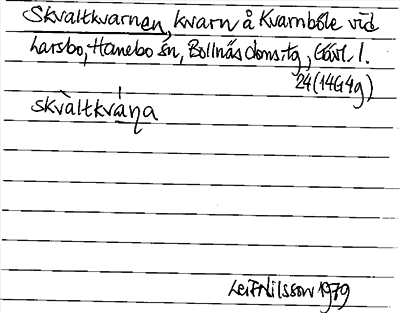 Skvaltkvarnen, kvarn å Kvarnböle vid
Larsbo, Hanebo sn, Bollnäs doms:tg, Gävl. l.
24(14G4g)
skvàltkvá̱ɳa
Leif Nilsson 1979